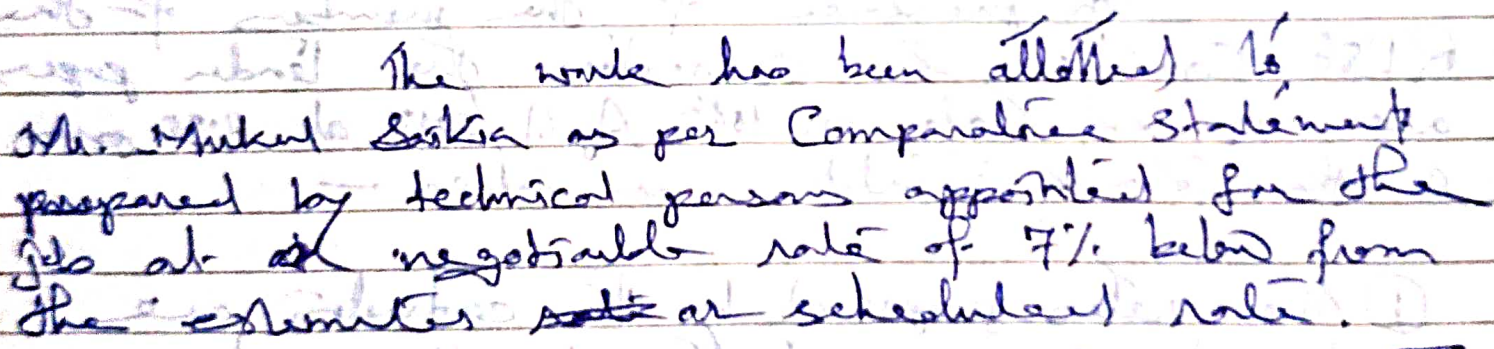 The work has been allotted to
Mr. Mukul Saikia as per Comparative Statement
prepared by technical persons appointed for the
job at negotiable rate of 7% below from
the estimates or scheduled rate.